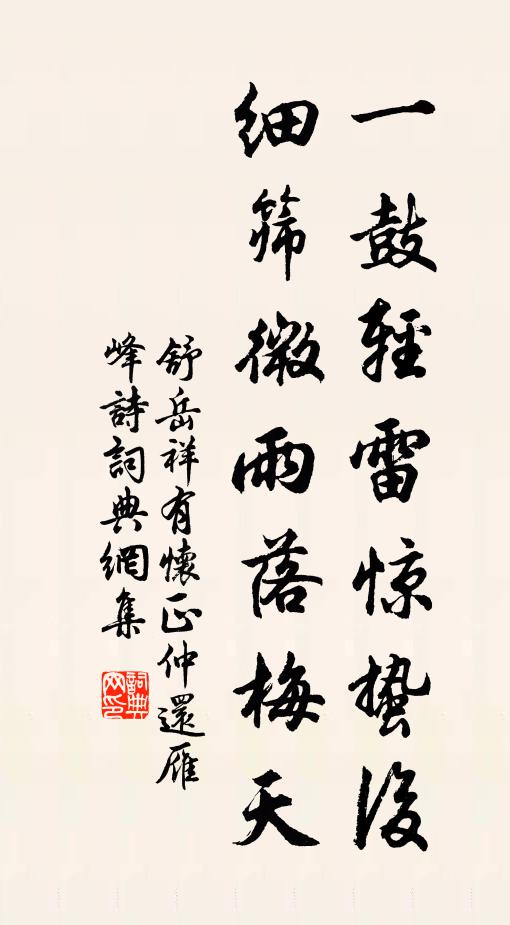 一鼓輕雷惊蛰後
細筛微雨落梅天
舒岳祥有懷正仲還雁
峰詩詞典網集
詞典
网印